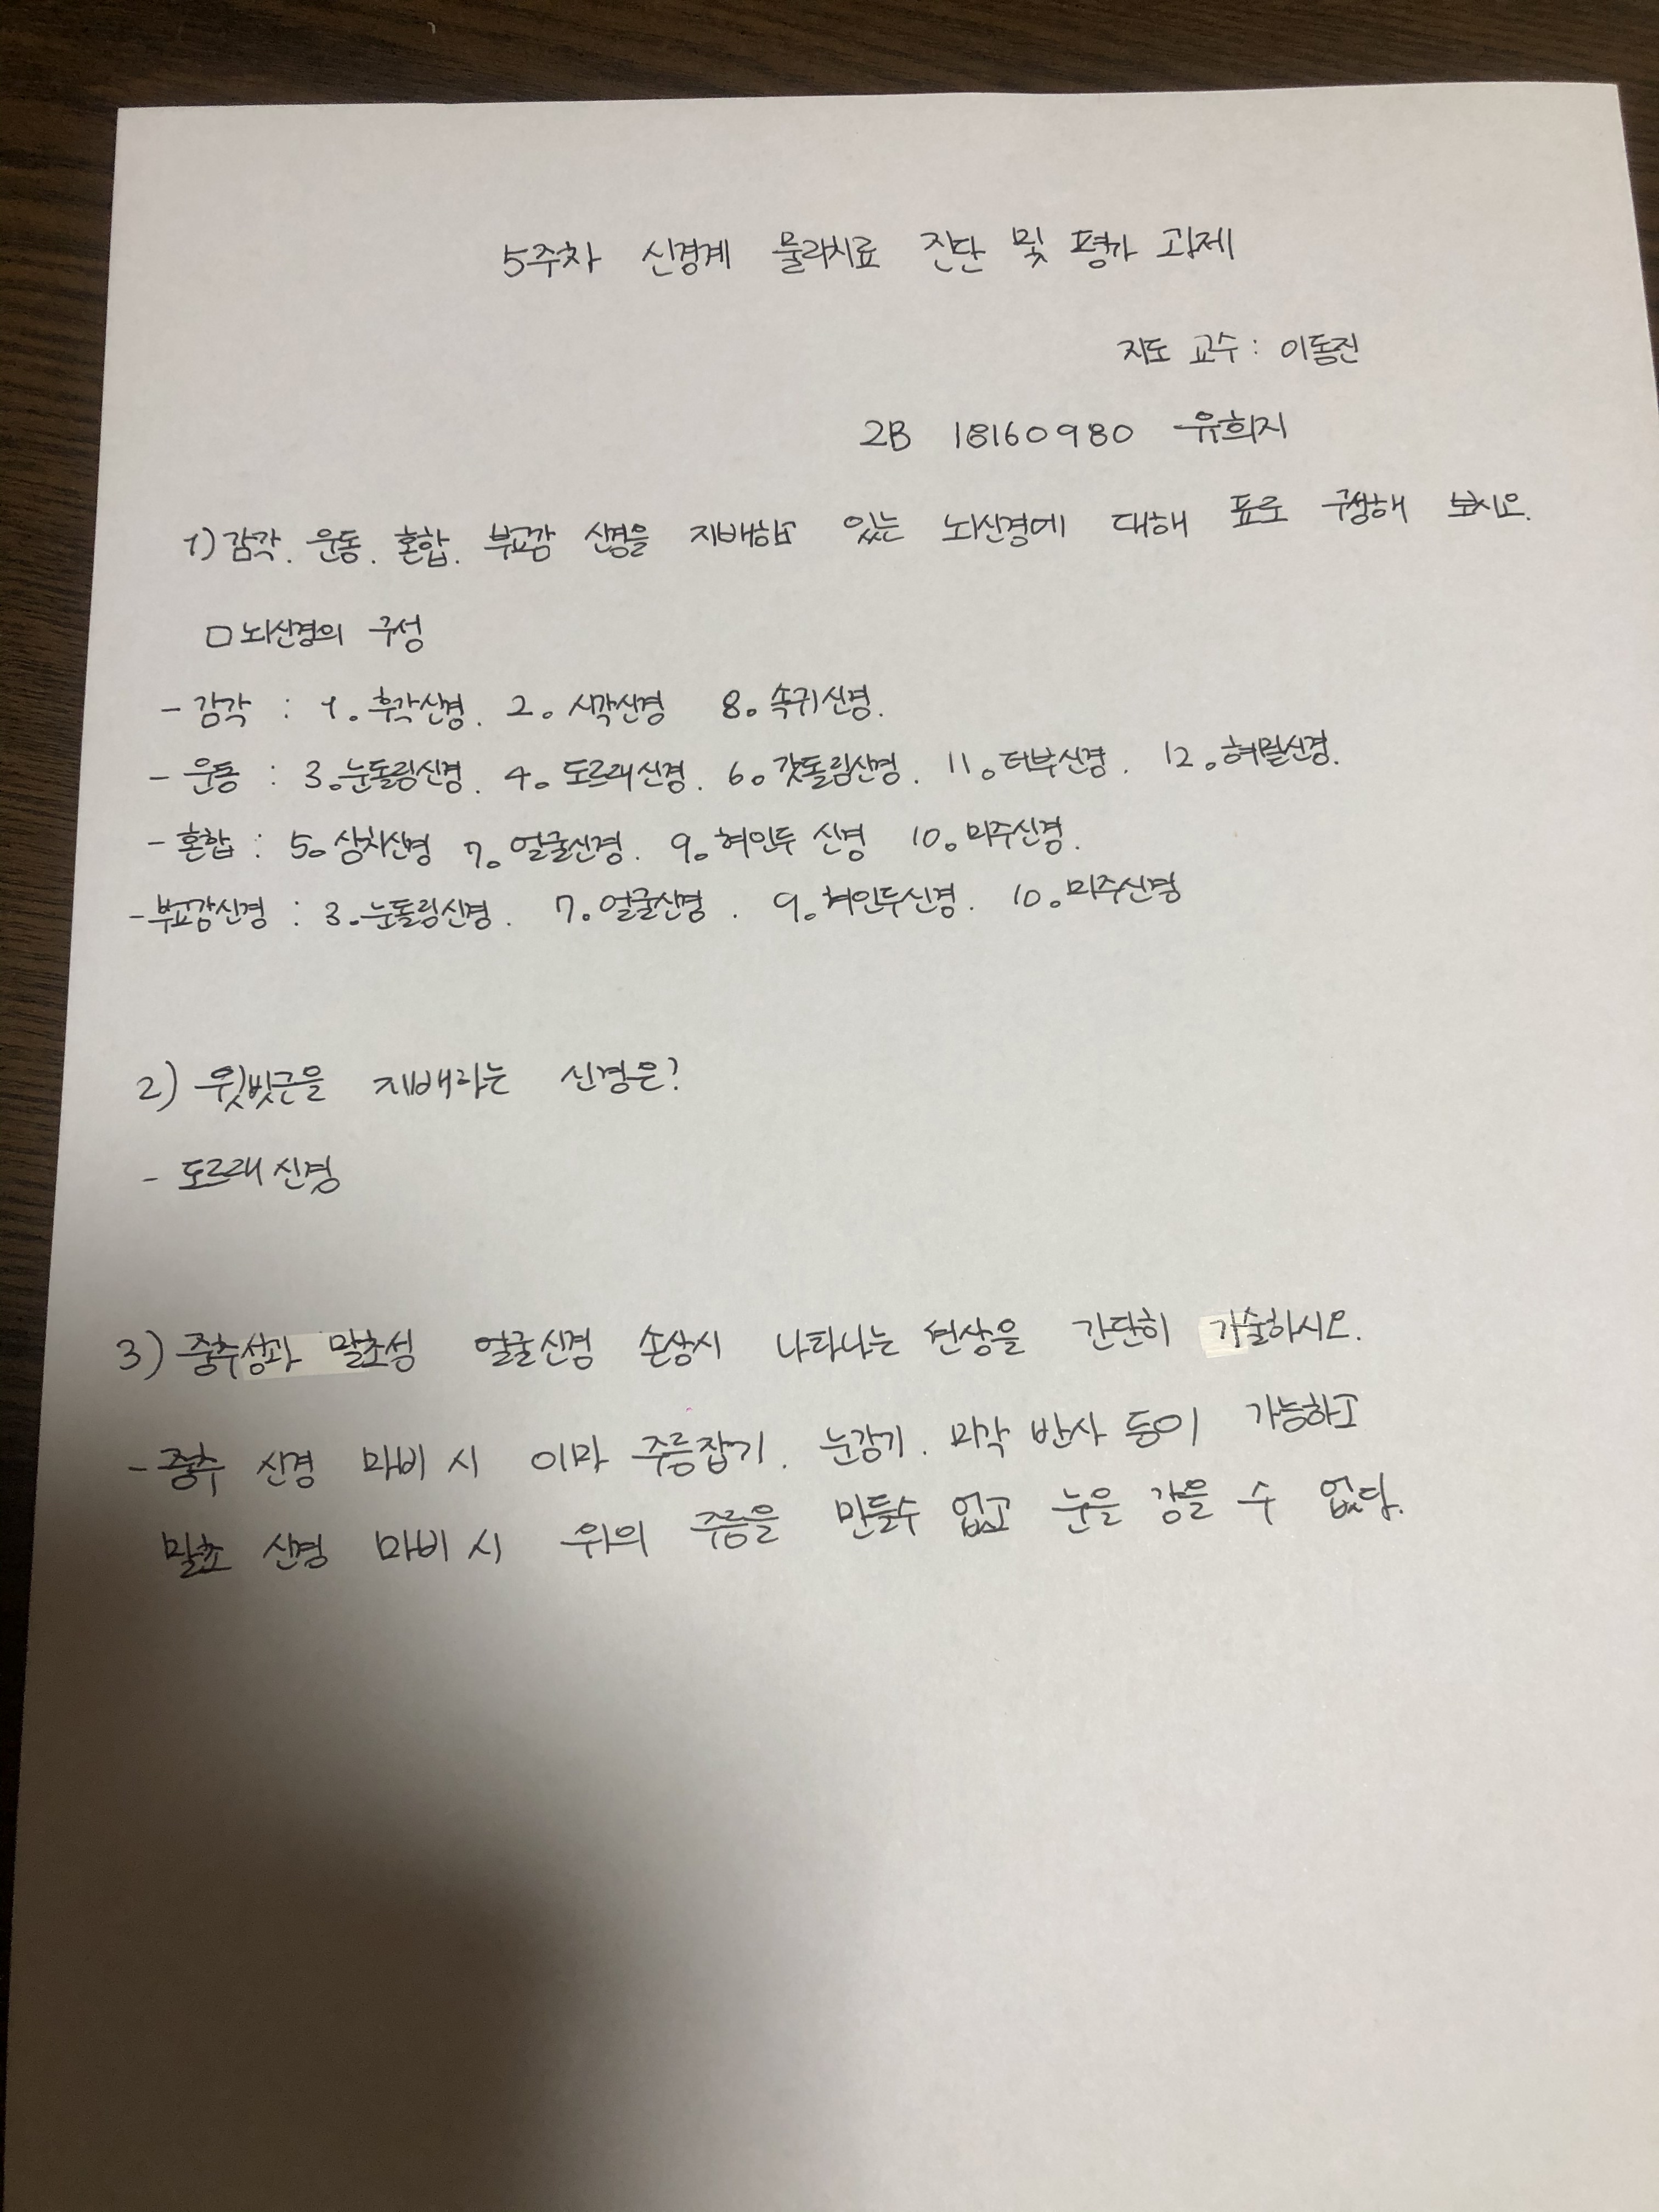 5주차 신경계 물리치료 진단 및 평가 과제
지도 교수 : 이동진
2B 18160980 유희지
1) 감각. 운동. 혼합. 부교감 신경을 지배하고 있는 뇌신경에 대해 표로 구성해 보시오.
□ 뇌신경의 구성
- 감각 : 1. 후각신경. 2. 시각신경 8. 속귀신경.
- 운동 : 3. 눈돌림신경. 4. 도르래신경. 6. 갓돌림신경. 11. 더부신경. 12. 혀밑신경.
- 혼합 : 5. 삼차신경 7. 얼굴신경. 9. 혀인두 신경 10. 미주신경.
- 부교감신경 : 3. 눈돌림신경. 7. 얼굴신경. 9. 혀인두신경. 10. 미주신경
2) 윗빗근을 지배하는 신경은?
- 도르래 신경
3) 중추성과 말초성 얼굴신경 손상시 나타나는 현상을 간단히 기술하시오.
- 중추 신경 마비 시 이마 주름잡기. 눈감기. 미각 반사 등이 가능하고
말초 신경 마비 시 위의 주름을 만들수 없고 눈을 감을 수 없다.